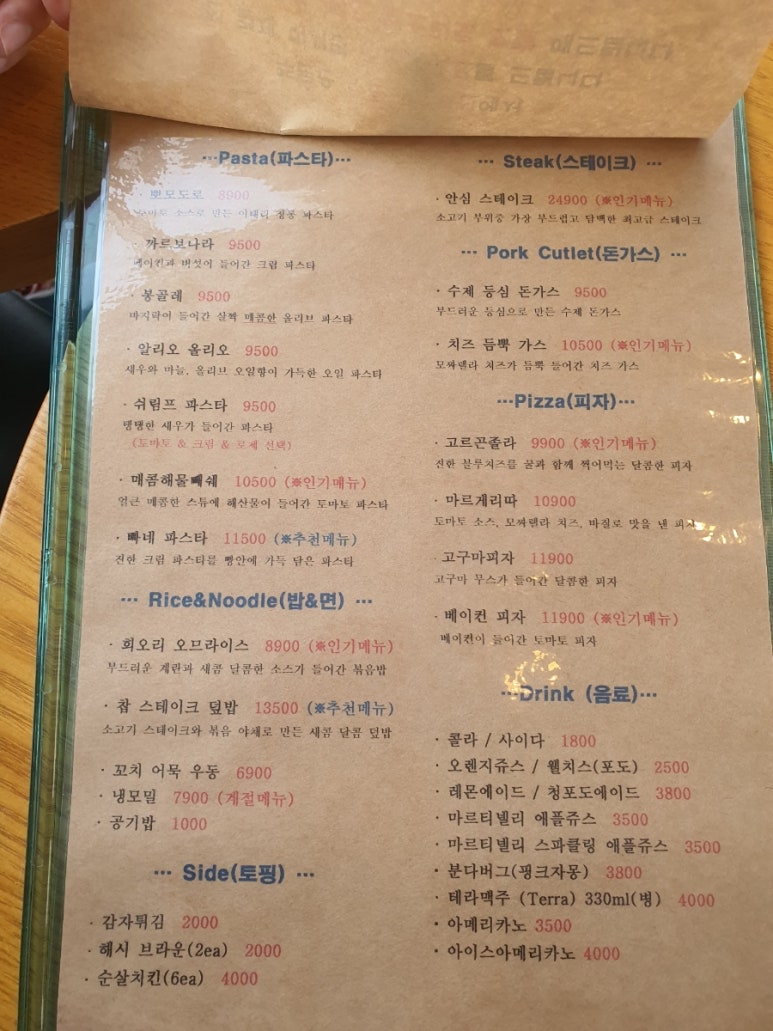 ···Pasta(파스타)···
· 뽀모도로 8900
토마토 소스로 만든 이태리 정통 파스타
· 까르보나라 9500
베이컨과 버섯이 들어간 크림 파스타
· 봉골레 9500
바지락이 들어간 살짝 매콤한 올리브 파스타
· 알리오 올리오 9500
새우와 마늘, 올리브 오일향이 가득한 오일 파스타
· 쉬림프 파스타 9500
탱탱한 새우가 들어간 파스타
(토마토 & 크림 & 로제 선택)
· 매콤해물빼쉐 10500 (※인기메뉴)
얼큰 매콤한 스튜에 해산물이 들어간 토마토 파스타
· 빠네 파스타 11500 (※추천메뉴)
진한 크림 파스타를 빵안에 가득 담은 파스타
··· Rice&Noodle(밥&면) ···
· 회오리 오므라이스 8900 (※인기메뉴)
부드러운 계란과 새콤 달콤한 소스가 들어간 볶음밥
· 찹 스테이크 덮밥 13500 (※추천메뉴)
소고기 스테이크와 볶음 야채로 만든 새콤 달콤 덮밥
· 꼬치 어묵 우동 6900
· 냉모밀 7900 (계절메뉴)
· 공기밥 1000
··· Side(토핑) ···
· 감자튀김 2000
· 해시 브라운(2ea) 2000
· 순살치킨(6ea) 4000
··· Steak(스테이크) ···
· 안심 스테이크 24900 (※인기메뉴)
소고기 부위중 가장 부드럽고 담백한 최고급 스테이크
··· Pork Cutlet(돈가스) ···
· 수제 등심 돈가스 9500
부드러운 등심으로 만든 수제 돈가스
· 치즈 듬뿍 가스 10500 (※인기메뉴)
모짜렐라 치즈가 듬뿍 들어간 치즈 가스
···Pizza(피자)···
· 고르곤졸라 9900 (※인기메뉴)
진한 블루치즈를 꿀과 함께 찍어먹는 달콤한 피자
· 마르게리따 10900
토마토 소스, 모짜렐라 치즈, 바질로 맛을 낸 피자
· 고구마피자 11900
고구마 무스가 들어간 달콤한 피자
· 베이컨 피자 11900 (※인기메뉴)
베이컨이 들어간 토마토 피자
···Drink (음료)···
· 콜라 / 사이다 1800
· 오렌지쥬스 / 웰치스(포도) 2500
· 레몬에이드 / 청포도에이드 3800
· 마르티넬리 애플쥬스 3500
· 마르티넬리 스파클링 애플쥬스 3500
· 분다버그(핑크자몽) 3800
· 테라맥주 (Terra) 330ml(병) 4000
· 아메리카노 3500
· 아이스아메리카노 4000